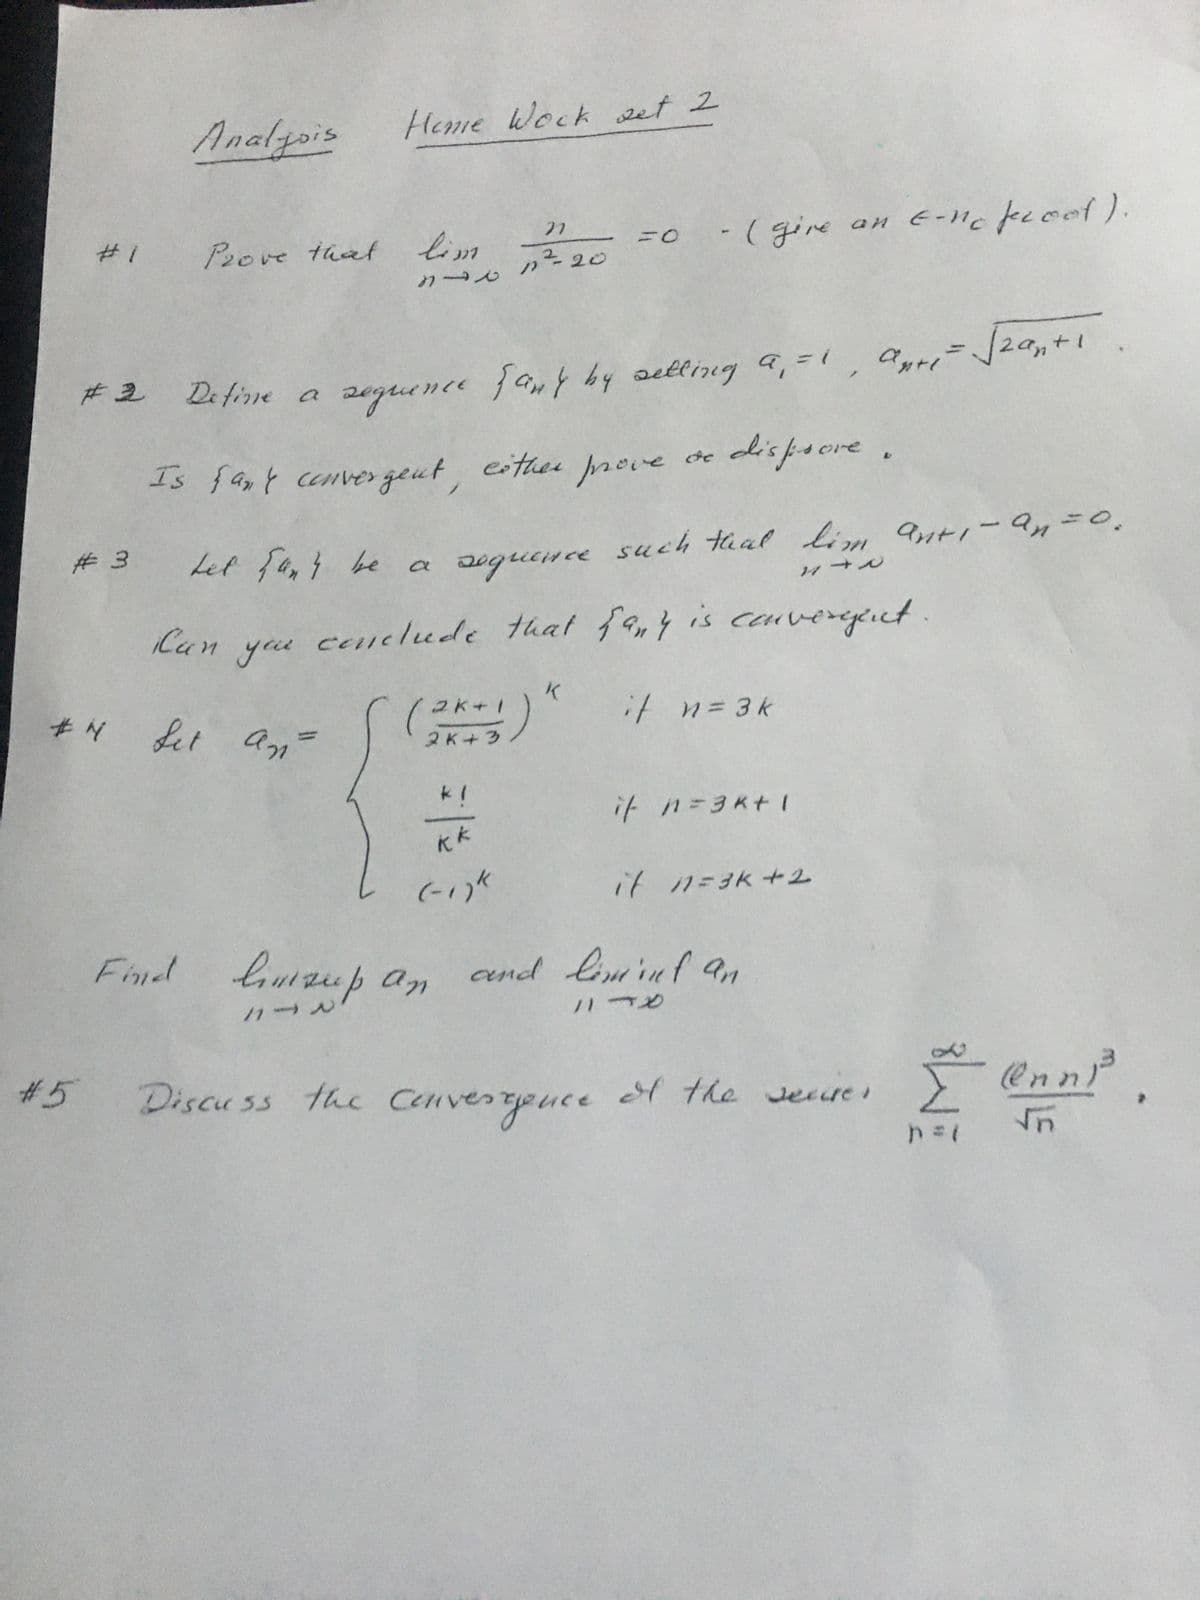 Analysis Home Work set 2
#1 Prove that lim n→∞ n/(n²-20) =0 - (give an ε-n₀ proof).
#2 Define a sequence {aₙ} by setting a₁=1, aₙ₊₁=√(2aₙ+1).
Is {aₙ} convergent, either prove or disprove.
#3 Let {aₙ} be a sequence such that lim n→∞ aₙ₊₁-aₙ=0.
Can you conclude that {aₙ} is convergent.
#4 Let aₙ= { ((2k+1)/(2k+3))^k if n=3k
k!/k^k if n=3k+1
(-1)^k if n=3k+2
Find limsup n→∞ aₙ and liminf n→∞ aₙ
#5 Discuss the convergence of the series ∑ n=1 ∞ (ln n)³/√n.